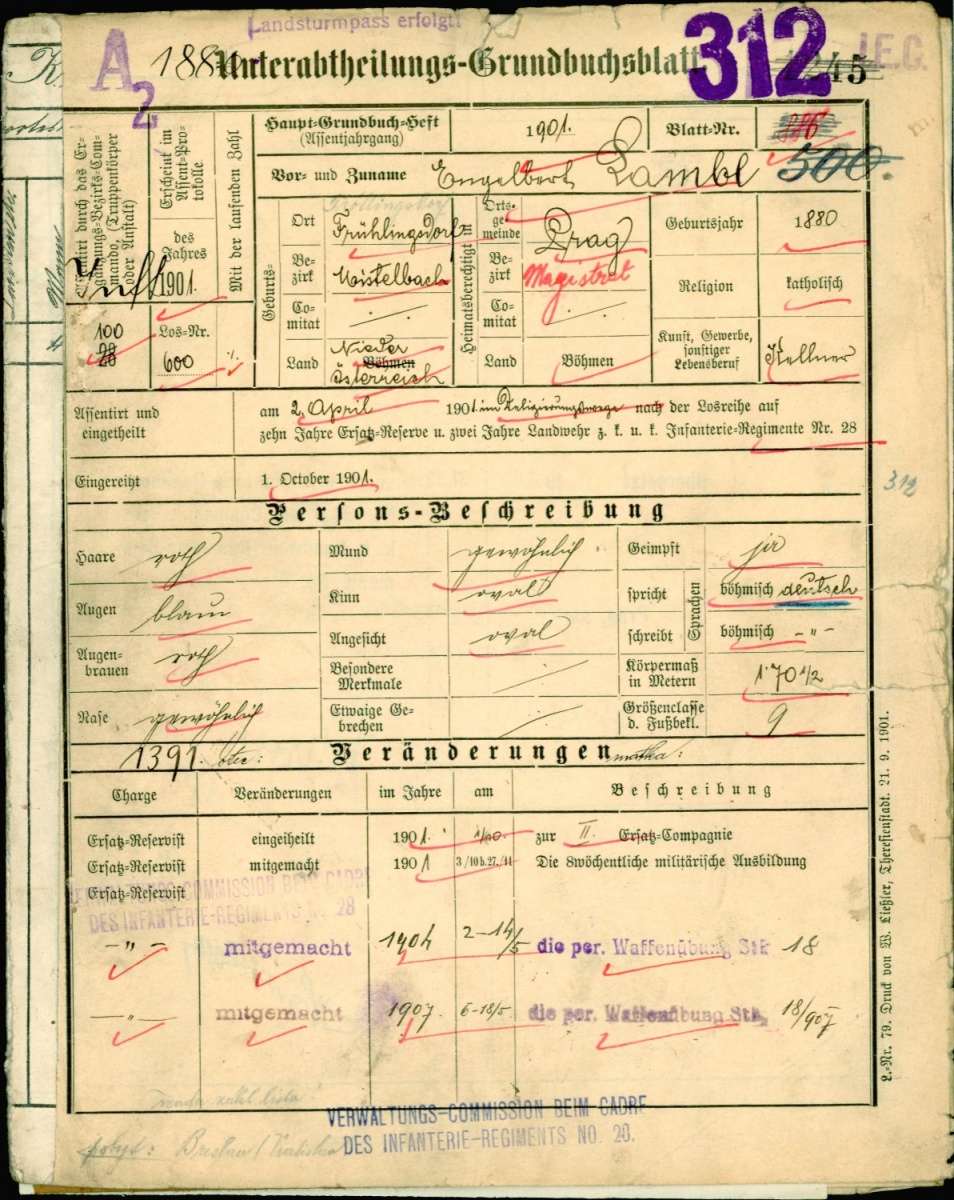 Landsturmpass erfolgt!
A2
Unterabtheilungs-Grundbuchsblatt
312
45
J.E.G.
Assentirt durch das Ergänzungs-Bezirks-Commando, (Truppenkörper oder Anstalt)
Erscheint im Assent-Protokolle
Mit der laufenden Zahl
des Jahres
1901.
100
28
Los-Nr.
600
Haupt-Grundbuch-Heft
(Assentjahrgang)
1901.
Blatt-Nr.
886
500.
Vor- und Zuname
Engelbert Lambl
Geburts-
Ort
Frühlingsdorf
Bezirk
Mistelbach
Comitat
Land
Nieder
Böhmen
Österreich
Heimatsberechtigt in
Ortsgemeinde
Prag
Bezirk
Magistrat
Comitat
Land
Böhmen
Geburtsjahr
1880
Religion
katholisch
Kunst, Gewerbe, sonstiger Lebensberuf
Kellner
Assentirt und eingetheilt
am 2. April 1901 im Religirungswege nach der Losreihe auf
zehn Jahre Ersatz-Reserve u. zwei Jahre Landwehr z. k. u. k. Infanterie-Regimente Nr. 28
Eingereiht
1. October 1901.
312
Persons-Beschreibung
Haare
roth
Augen
blau
Augenbrauen
roth
Nase
gewöhnlich
Mund
gewöhnlich
Kinn
oval
Angesicht
oval
Besondere Merkmale
Etwaige Gebrechen
Geimpft
ja
Sprachen
spricht
böhmisch deutsch
schreibt
böhmisch -"-
Körpermaß in Metern
1·70 1/2
Größenclasse d. Fußbekl.
9
1391. otec:
Veränderungen
matka:
Charge
Veränderungen
im Jahre
am
Beschreibung
Ersatz-Reservist eingetheilt 1901. 1/10. zur II. Ersatz-Compagnie
Ersatz-Reservist mitgemacht 1901 3/10 b. 27./11 Die 8wöchentliche militärische Ausbildung
Ersatz-Reservist
VERWALTUNGS-COMMISSION BEIM CADRE
DES INFANTERIE-REGIMENTS No 28
-"- mitgemacht 1904 2-14/5 die per. Waffenübung Stk 18
-"- mitgemacht 1907. 6-18/5 die per. Waffenübung Stk, 18/907
VERWALTUNGS-COMMISSION BEIM CADRE
DES INFANTERIE-REGIMENTS NO. 28.
pobyt:
L.-Nr. 79. Druck von W. Ließler, Theresienstadt. 21. 9. 1901.